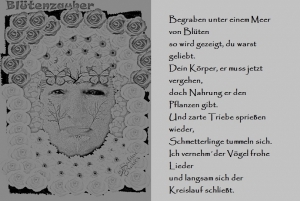 Blütenzauber
Begraben unter einem Meer
von Blüten
so wird gezeigt, du warst
geliebt.
Dein Körper, er muss jetzt
vergehen,
doch Nahrung er den
Pflanzen gibt.
Und zarte Triebe sprießen
wieder,
Schmetterlinge tummeln sich.
Ich vernehm' der Vögel frohe
Lieder
und langsam sich der
Kreislauf schließt.